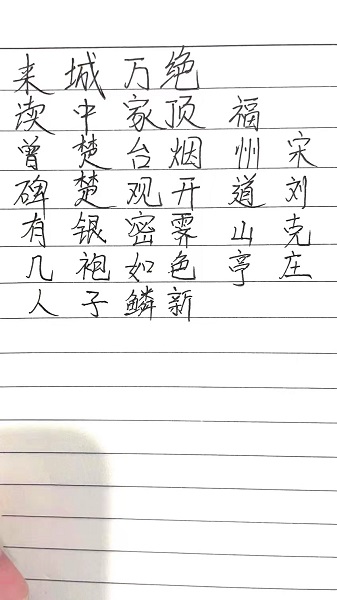 宋刘克庄
福州道山亭
绝顶烟开霁色新
万家台观密如鳞
城中楚楚银袍子
来读曾碑有几人